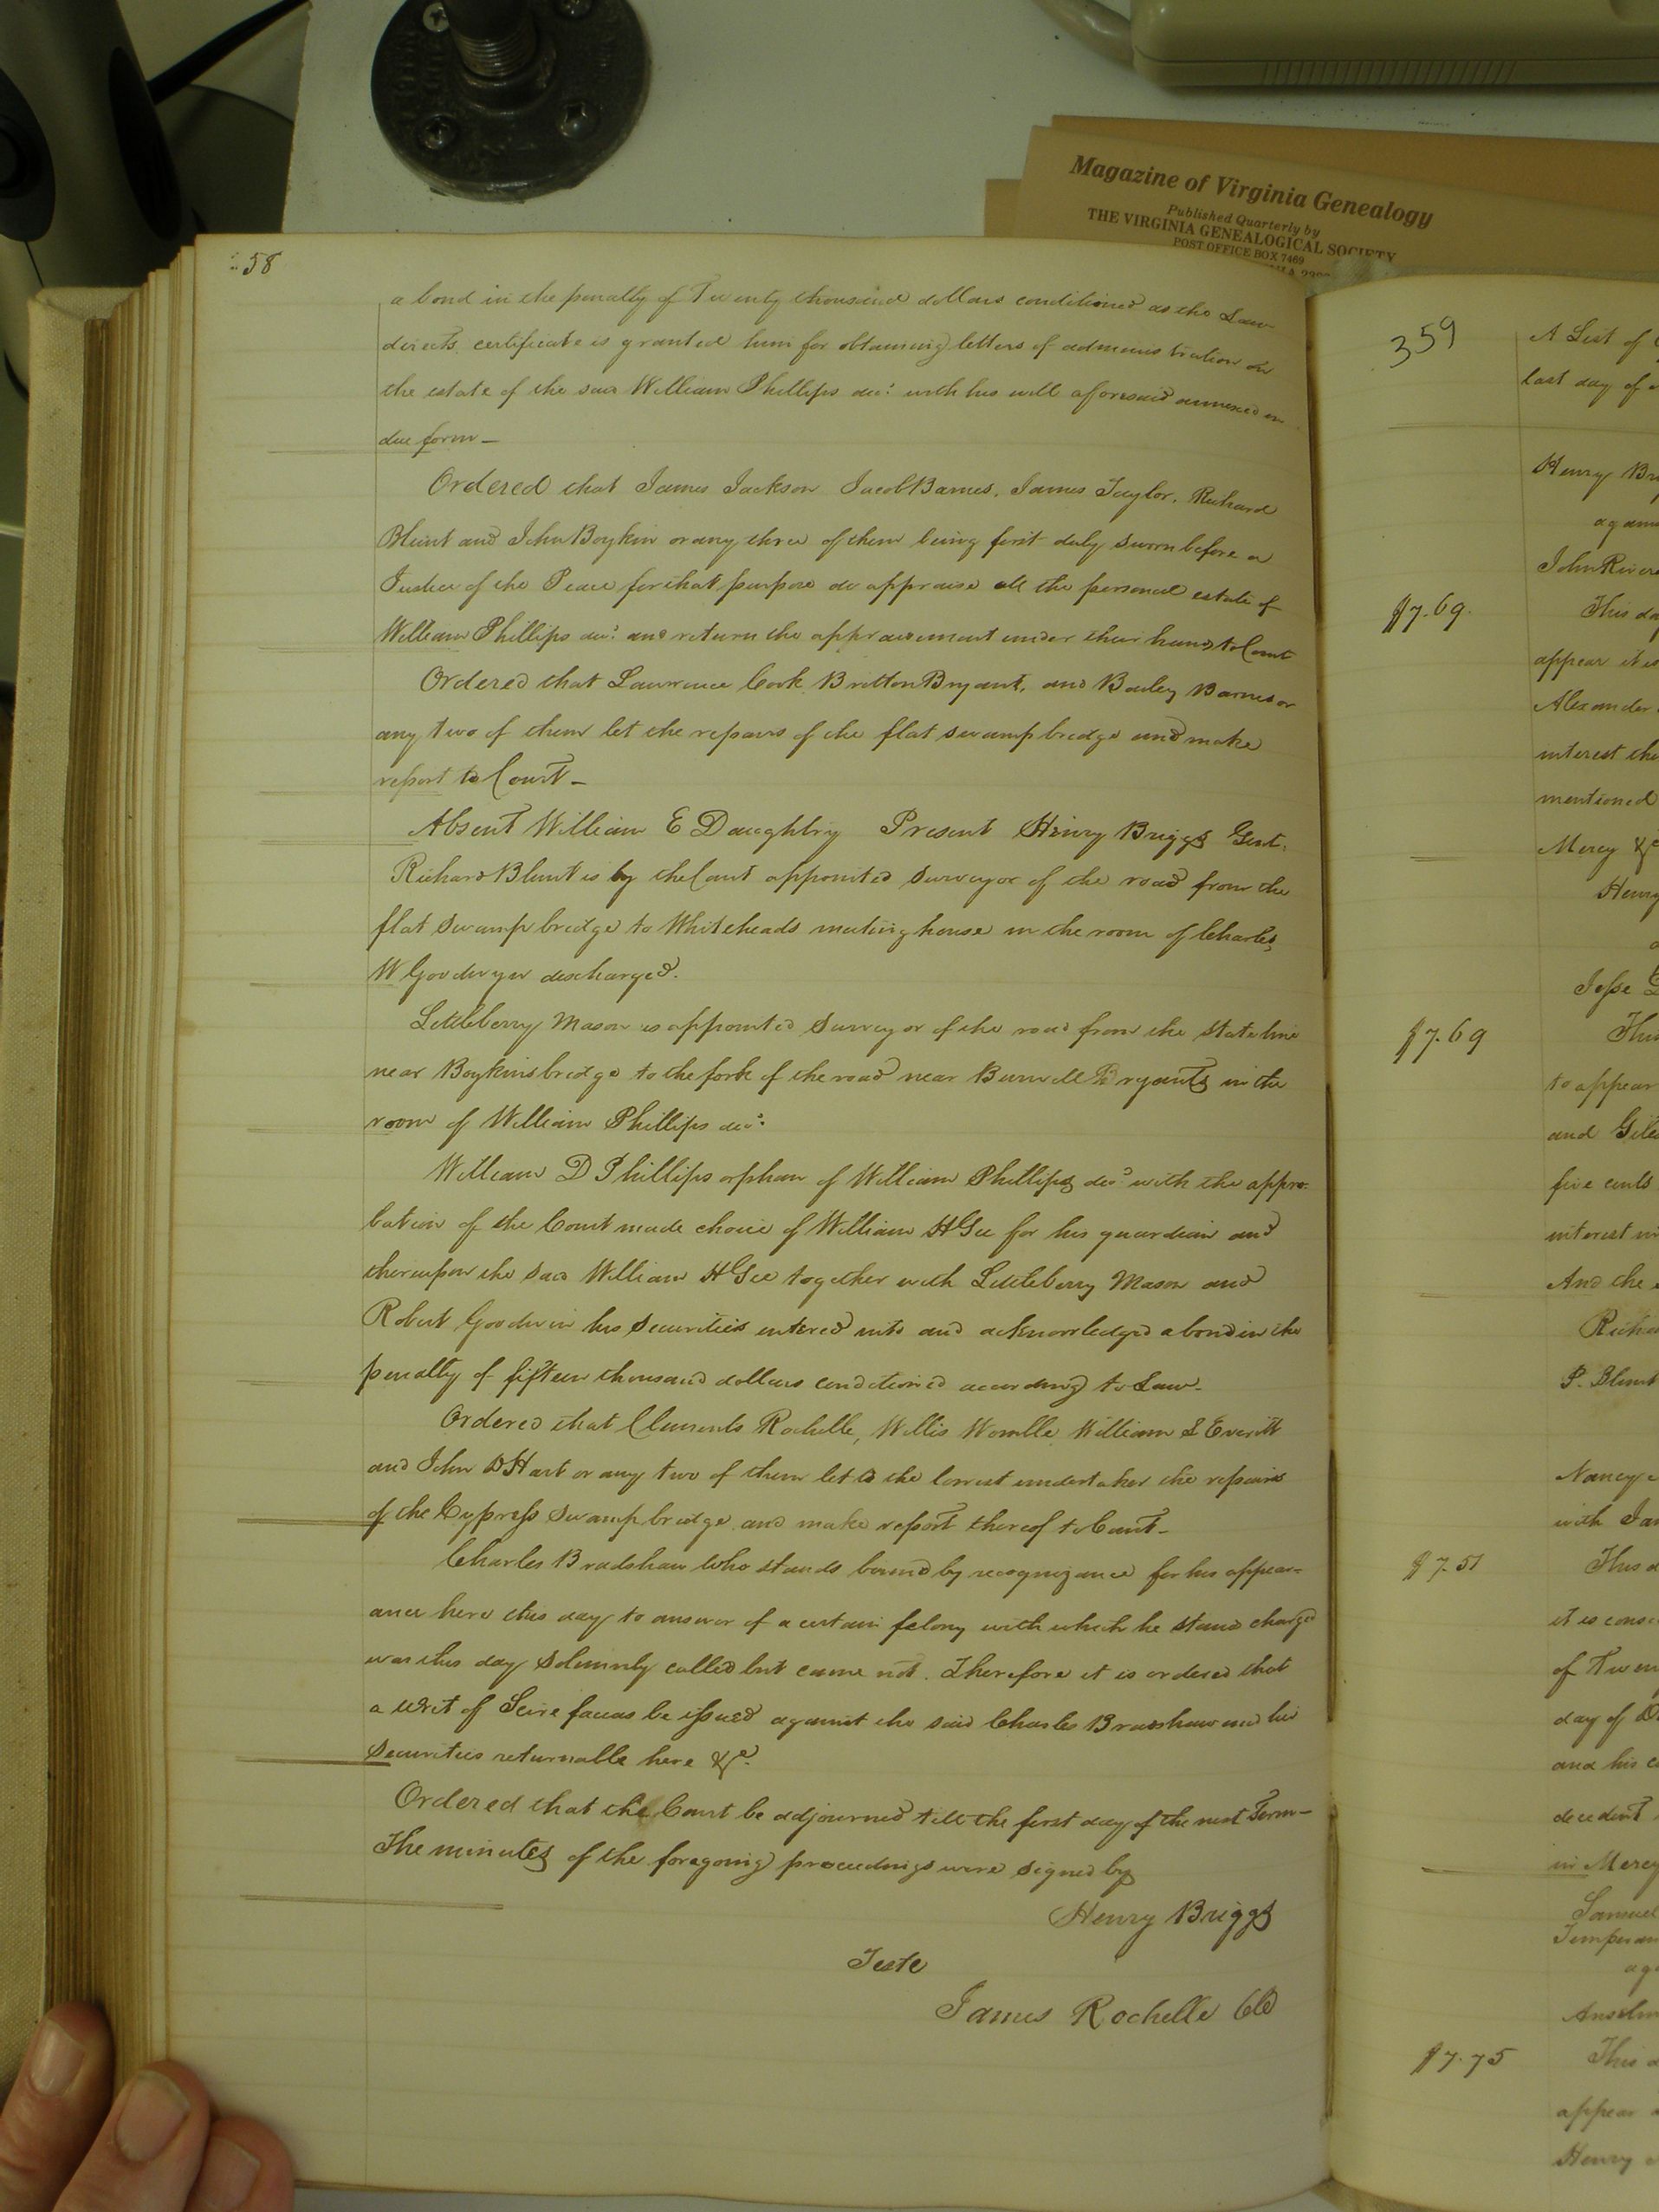 Magazine of Virginia Genealogy
Published Quarterly by
THE VIRGINIA GENEALOGICAL SOCIETY
POST OFFICE BOX 7469
58
a bond in the penalty of Twenty thousand dollars conditioned as the Law
directs, certificate is granted him for obtaining letters of administration on
the estate of the said William Phillips decd. with his will aforesaid annexed in
due form —
Ordered that James Jackson Jacob Barnes, James Taylor, Richard
Blunt and John Boykin or any three of them being first duly sworn before a
Justice of the Peace for that purpose do appraise all the personal estate of
William Phillips decd. and return the appraisement under their hands to Court
Ordered that Lawrence Cook, Britton Bryant, and Bailey Barnes or
any two of them let the repairs of the flat swamp bridge and make
report to Court —
Absent William E Daughtry Present Henry Briggs Gent.
Richard Blunt is by the Court appointed surveyor of the road from the
flat swamp bridge to Whiteheads meeting house in the room of Charles
W Goodwyn discharged.
Littleberry Mason is appointed surveyor of the road from the state line
near Boykins bridge to the fork of the road near Burwell Bryants in the
room of William Phillips decd.
William D Phillips orphan of William Phillips decd. with the appro-
bation of the Court made choice of William H Gee for his guardian and
thereupon the said William H Gee together with Littleberry Mason and
Robert Goodwin his securities entered into and acknowledged a bond in the
penalty of fifteen thousand dollars conditioned according to Law —
Ordered that Clements Rochelle, Willis Womble William S Everitt
and John D Hart or any two of them let to the lowest undertaker the repairs
of the Cypress Swamp bridge and make report thereof to Court —
Charles Bradshaw who stands bound by recognizance for his appear=
ance here this day to answer of a certain felony with which he stand charged
was this day solemnly called but came not. Therefore it is ordered that
a writ of Scire facias be issued against the said Charles Bradshaw and his
securities returnable here &c.
Ordered that the Court be adjourned till the first day of the next Term —
The minutes of the foregoing proceedings were signed by
Henry Briggs
Teste
James Rochelle Clk
359
A List of
last day of
Henry
John Rivers
$7.69.
This day
appear it is
Alexander
interest the
mentioned
Mercy &c
Henry
Jesse
$7.69
This
to appear
and
five cents
interest
And the
P. Blunt
Nancy
with
$7.51
This
it is
of
day of
and his
decedent
in Mercy
Samuel
$7.75
This
appear
Henry